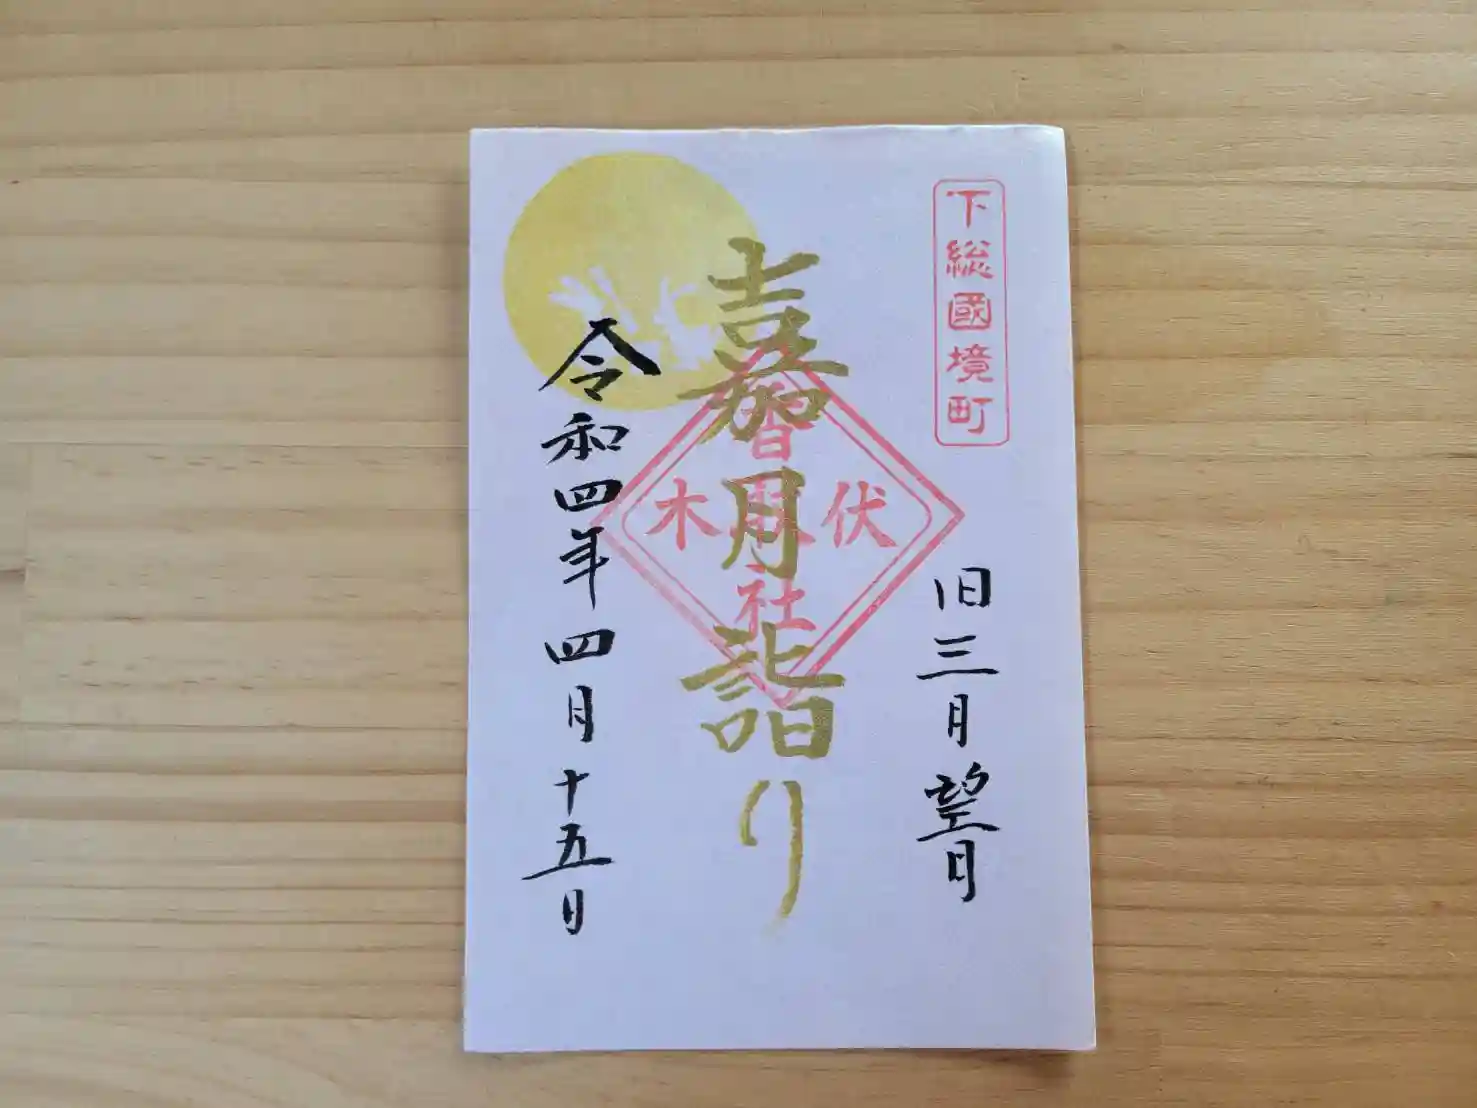 下総國境町
旧三月望月
嘉月詣り
伏木香取社
令和四年四月十五日